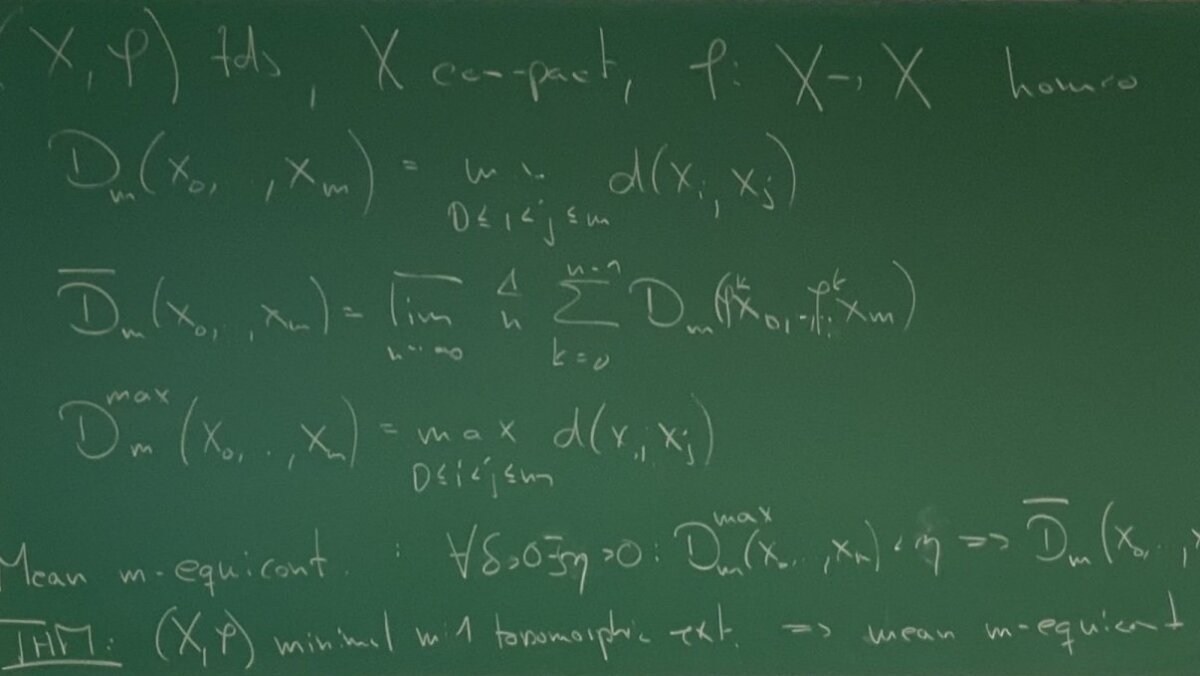 (X, φ) tds, X compact, φ: X → X homeo
D_m(x_0, , x_m) = min_{0≤i<j≤m} d(x_i, x_j)
D̅_m(x_0, .., x_m) = \overline{lim}_{n→∞} 1/n ∑_{k=0}^{n-1} D_m(φ^k x_0, .., φ^k x_m)
D_m^{max}(x_0, .., x_m) = max_{0≤i<j≤m} d(x_i, x_j)
Mean m-equicont. : ∀δ>0 ∃η>0: D_m^{max}(x_0, .., x_m) < η => D̅_m(x_0, ..,
THM: (X, φ) minimal m:1 topomorphic ext. => mean m-equicont